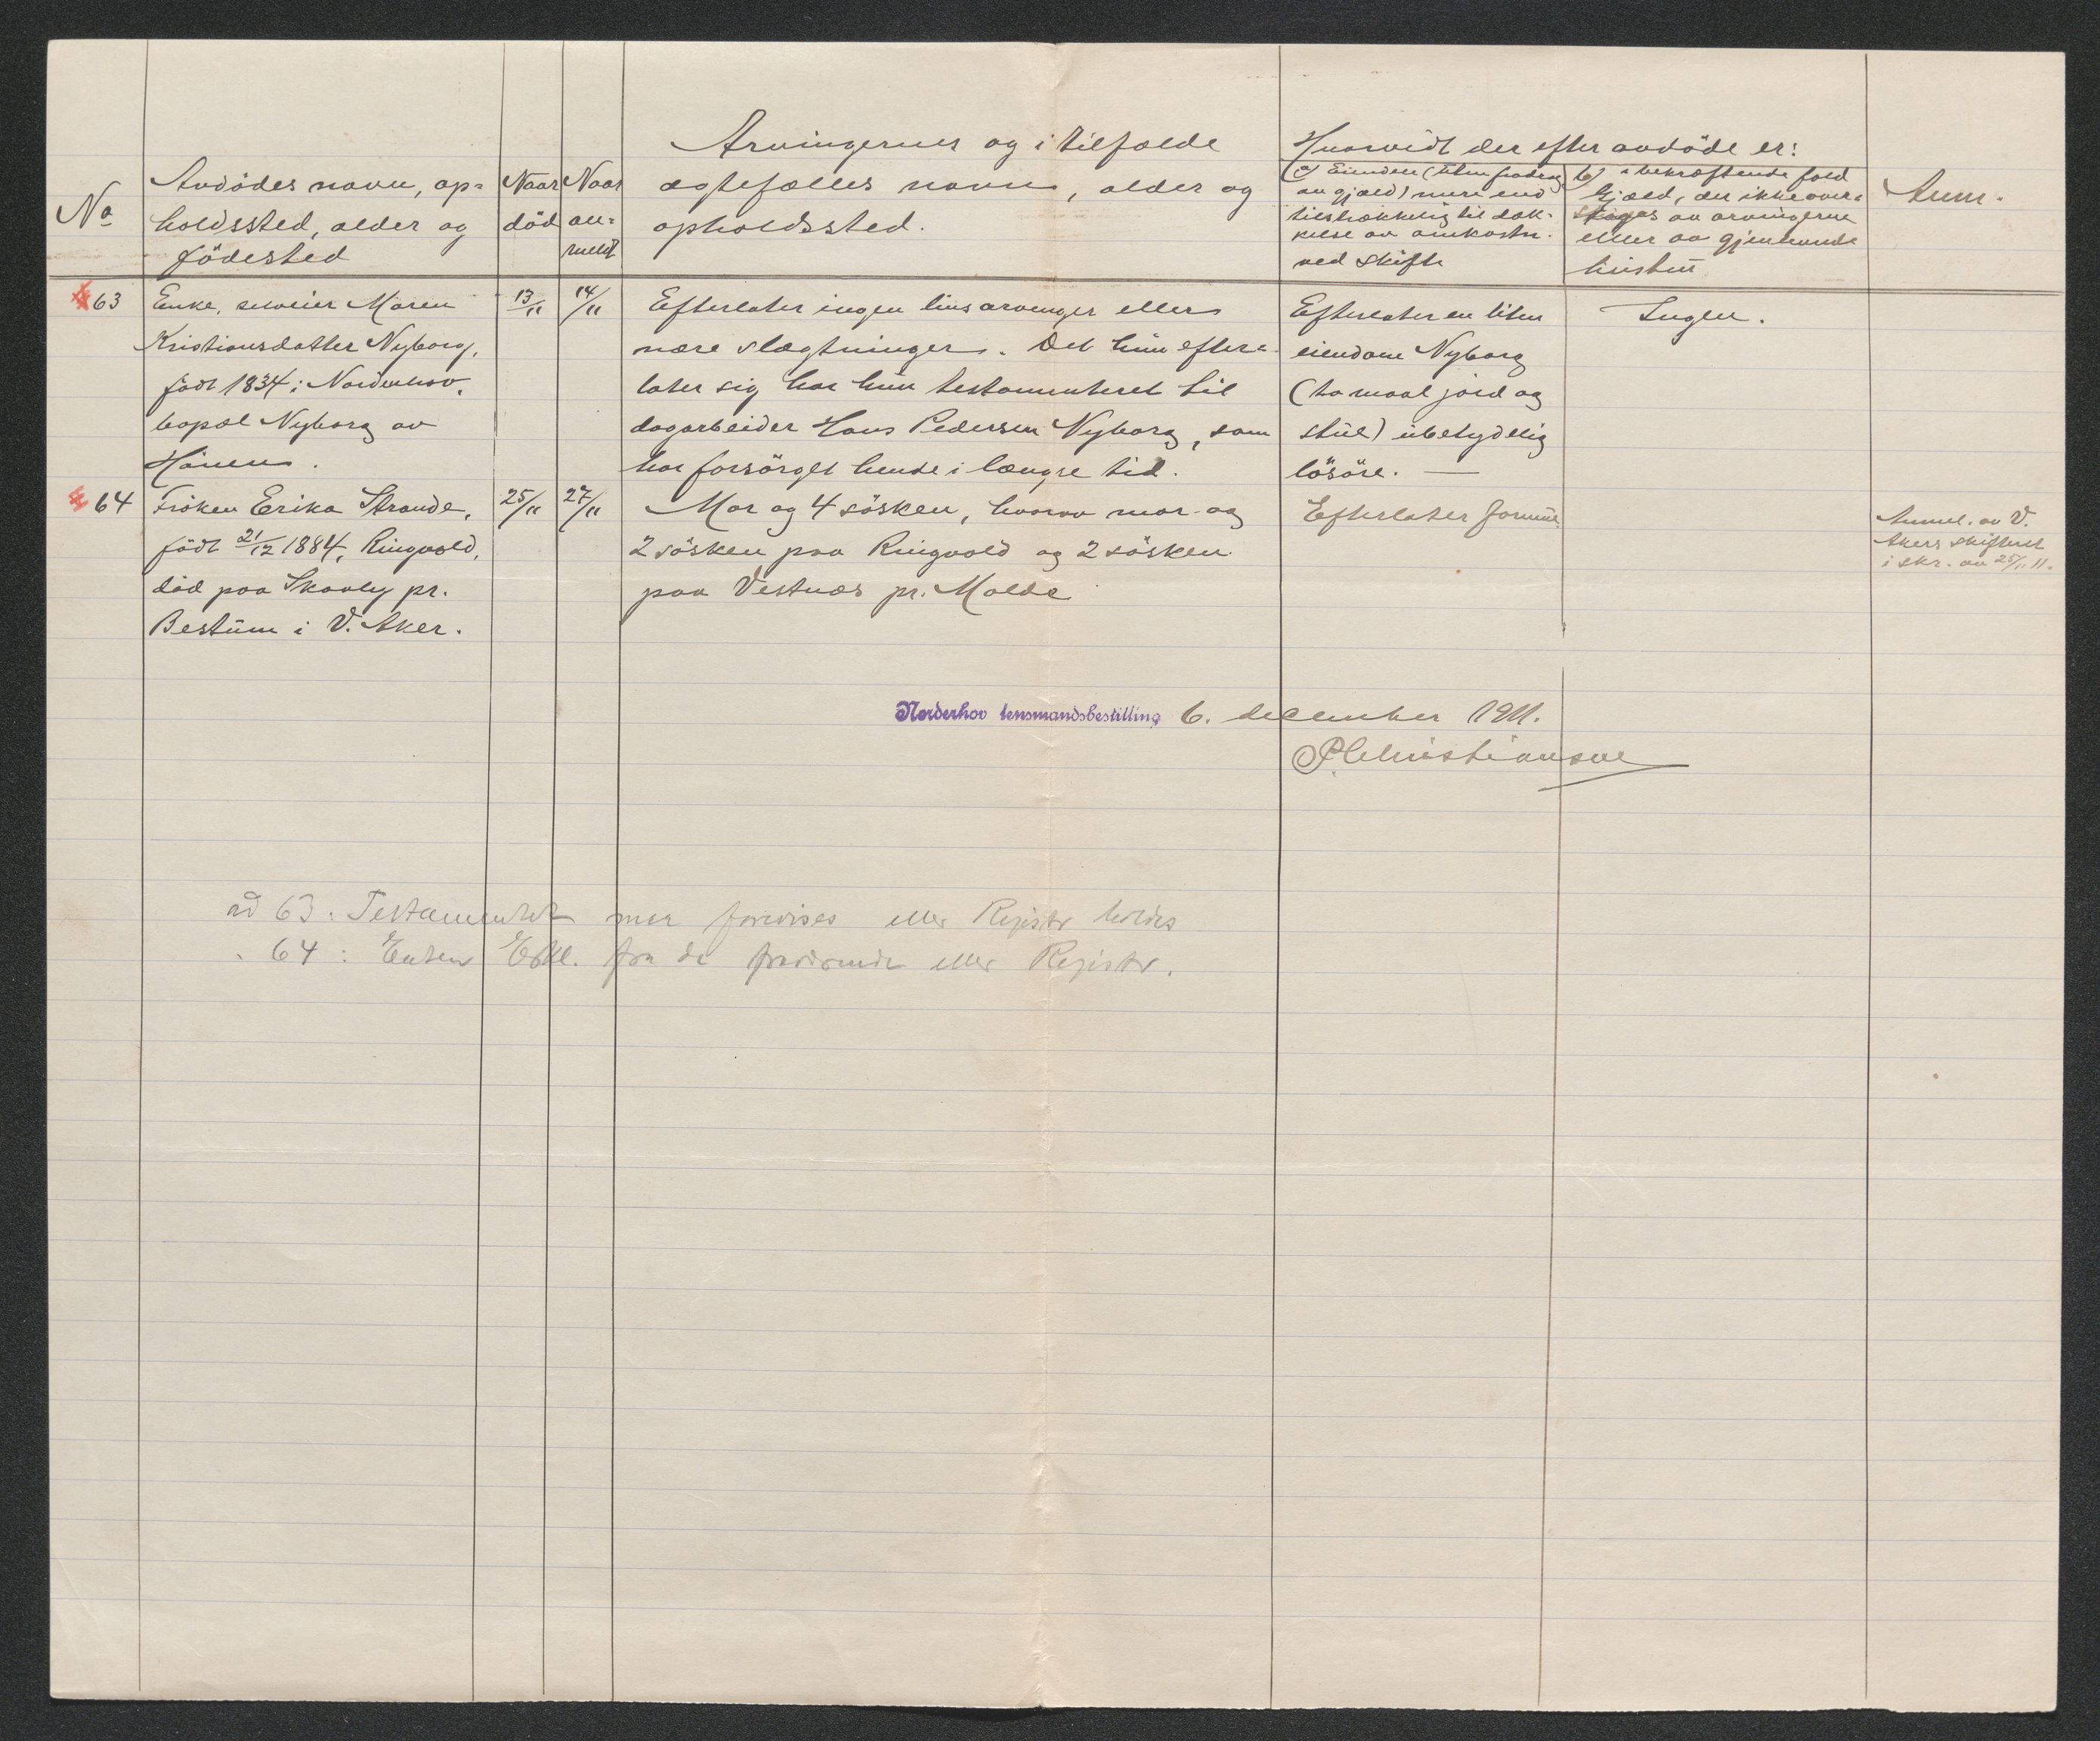 No
Avdödes navn, op-
holdssted, alder og
födested
Naar
död
Naar
an-
meldt
Arvingernes og i tilfælde
ægtefælles navn, alder og
opholdssted.
Hvorvidt der efter avdöde er:
a) Eiendele (uten fradrag
av gjæld) mere end
tilstrækkelig til dæk-
kelse av omkostn.
ved skifte
b) i bekræftende fald
Gjæld, der ikke over-
stiges av arvingerne
eller av gjenlevende
hustru
Anm.
63
Enke, selveier Maren
Kristiansdatter Nyborg,
födt 1834 i Norderhov,
bopæl Nyborg av
Hönen.
13/11
14/11
Efterlater ingen livsarvinger eller
nære slægtninger. Det hun efter-
later sig har hun testamenteret til
dagarbeider Hans Pedersen Nyborg, som
har forsörget hende i længre tid.
Efterlater en liten
eiendom Nyborg
(to maal jord og
stue) ubetydelig
lösöre. —
Ingen.
64
Fröken Erika Strande,
födt 21/12 1884, Ringvold,
död paa Skovly pr.
Bestum i V. Aker.
25/11
27/11
Mor og 4 sösken, hvorav mor og
2 sösken paa Ringvold og 2 sösken
paa Vestnes pr. Molde
Efterlater formue.
Anmel. av V.
Akers skifteret
i skr. av 25/11 11.
Norderhov lensmandsbestilling 6. december 1911.
P. Christiansen
ad 63: Testamentet maa forevises eller Registr holdes
" 64: Enten Erkl. fra de myndige eller Registr.